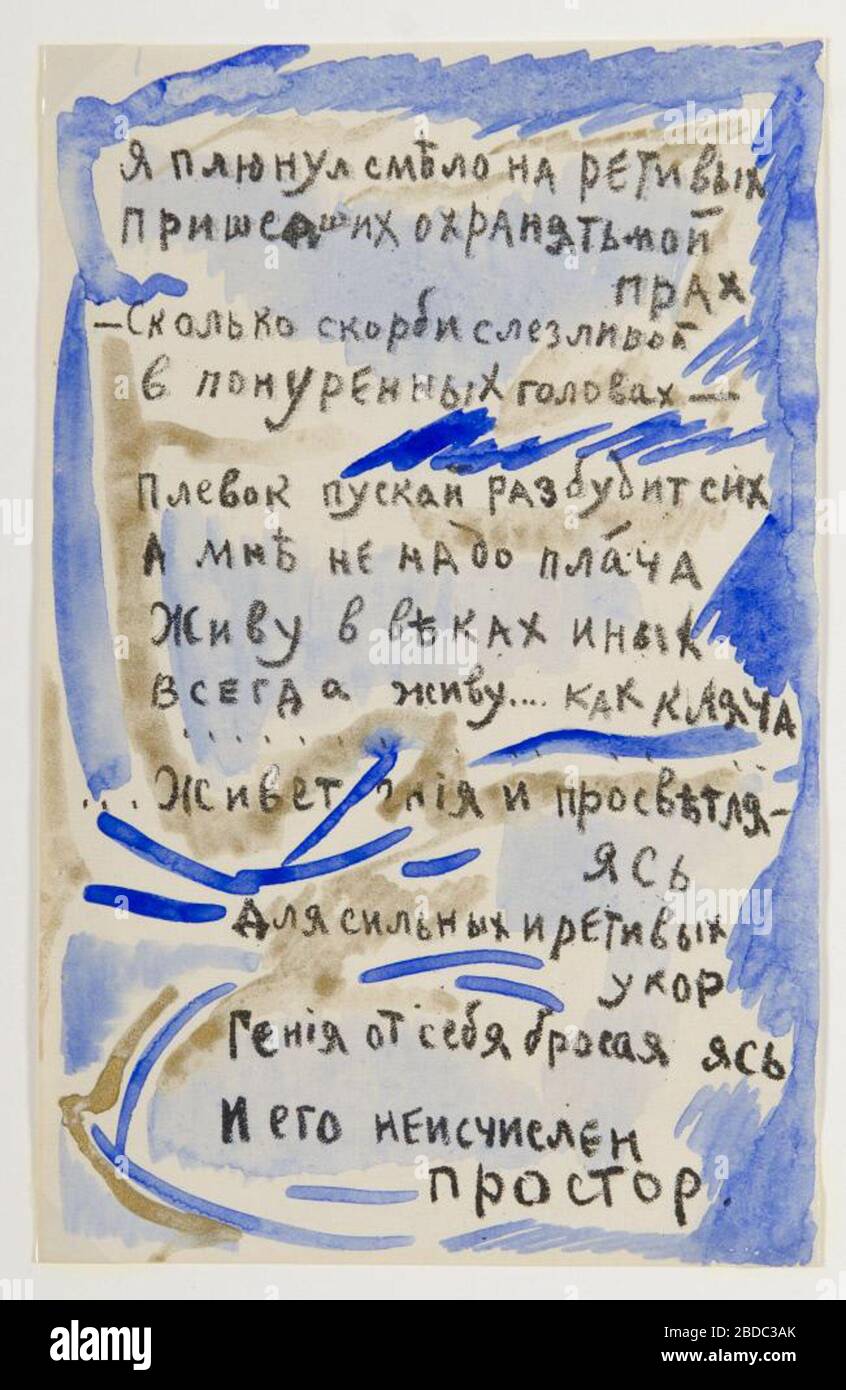 Я плюнул смѣло на ретивых
пришедших охранять мой
прах
— Сколько скорби слезливой
в понуренных головах —
Плевок пускай разбубит сих
А мнѣ не надо пла́ча
Живу в вѣках иных
всегда живу.... как кляча
.... Живет и просвѣтля-
ясь
Для сильных и ретивых
укор
Генія от себя бросая ясь
И его неисчислен
простор.
alamy
Image ID: 2BDC3AK
www.alamy.com